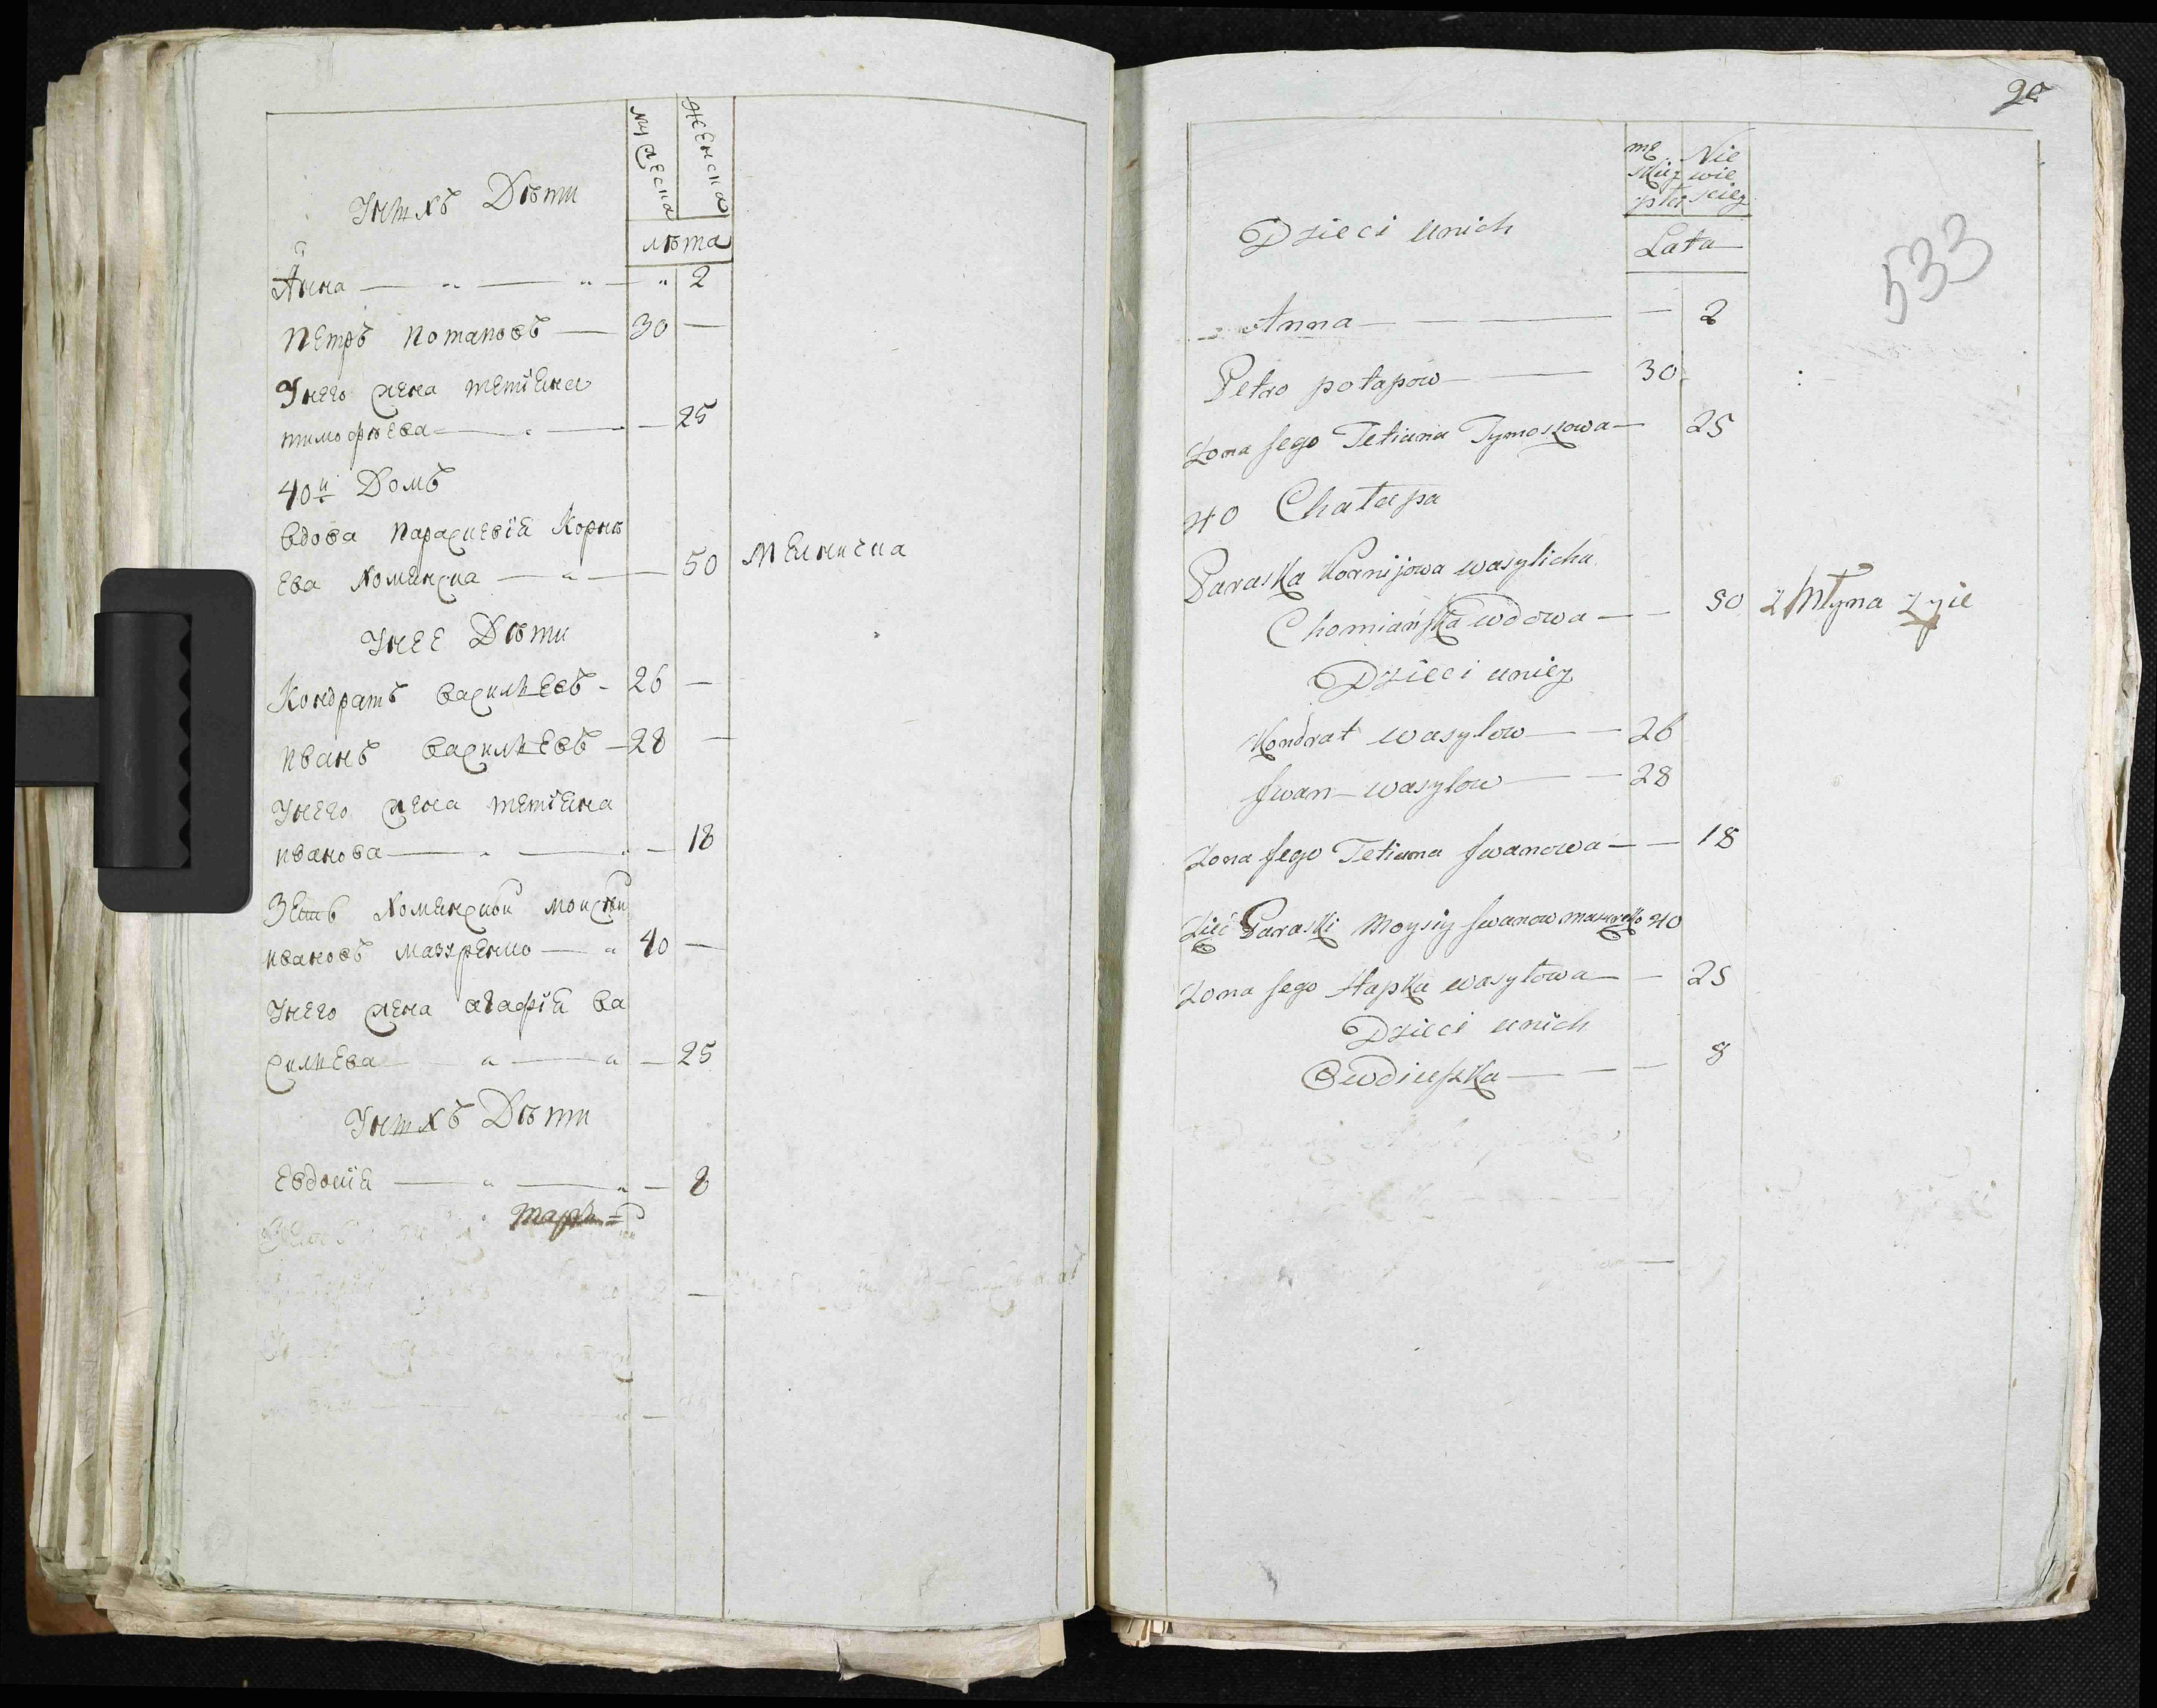 мужеска женска
Унихъ Дѣти
лѣта
Анна — „ — „ — „ 2
Петръ Потаповъ — 30 —
Унего жена тетіяна
тимофѣева — „ — — 25
40й Домъ
вдова Параскевія Корнѣ
ева Хоминска — „ — 50 Мелничка
Унее Дѣти
Кондратъ васильевъ - 26 —
иванъ васильевъ - 28 —
Унего жена тетіяна
иванова — „ — „ — 18
Зеть Хоминской Моисѣй
ивановъ мазуренко — „ 40 —
Унего жена агафія ва
сильева „ — „ — 25
Унихъ Дѣти
Евдокія — „ — „ — 8
90
533
mę Nie
skiey wie
płci sciey
Dzieci unich
Lata
Anna — — — 2
Petro potapow — — 30
Zona Jego Tetiana Tymoszowa — 25
40 Chałupa
Paraska Kornijowa wasylicha
Chomiańska wdowa — — 50 z Młyna zyie
Dzieci uniey
Kondrat wasylow — — 26
Jwan — wasylow — — 28
Zona Jego Tetiana Jwanowa — — 18
Zięć Paraski Moysiy Jwanow mazurenko 40
Zona Jego Hapka wasyłowa — — 25
Dzieci unich
Owdiuszka — — — 8